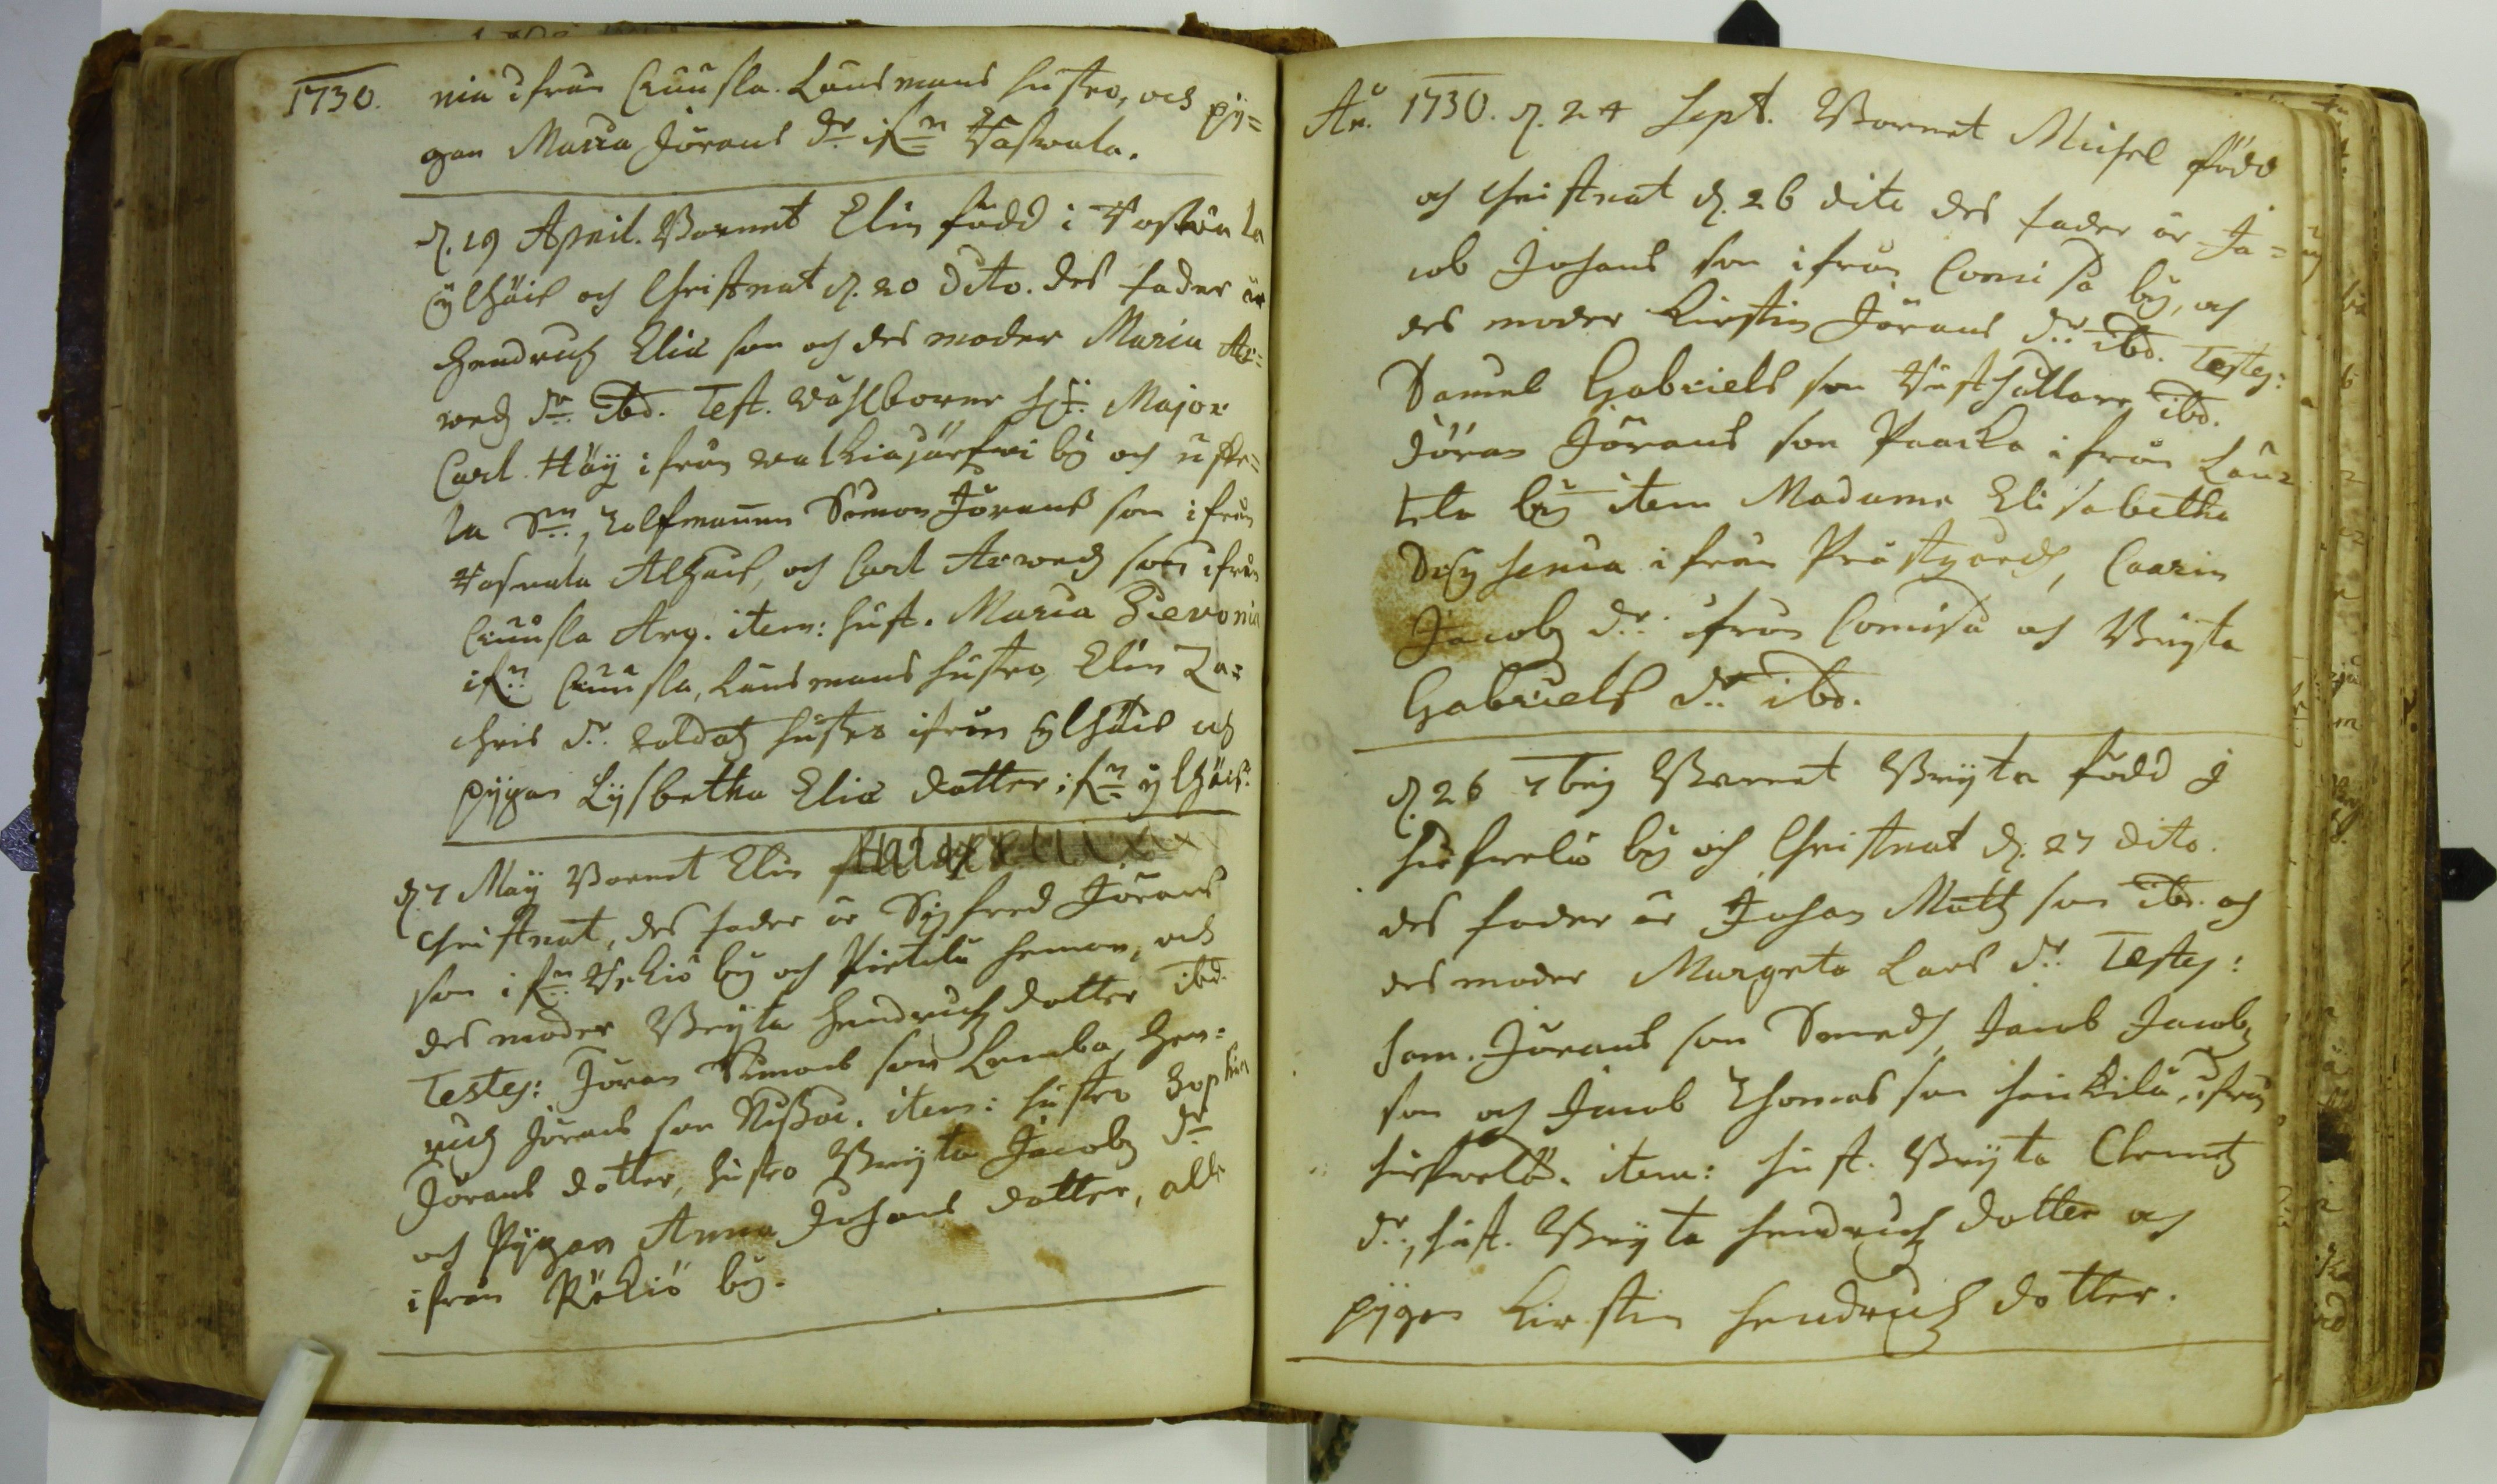 1730. nia ifrån Cuusla. Länsmans hustro, och py=
gan Maria Jörans dr. ifrn Taswala.
d. 19 April. Barnet Elin född i Toswala
ylhäis och Christnat d. 20 Dito. des fader är
Hendrich Eliæ son och des moder Maria Ar=
wedz dr. ibd. Test. Major
Carl ifrån walkiajärfwi by och
Simon Jörans son ifrån
Alhais, och Carl Arwedz son ifrån
Cuusla Arg. item: hust. Maria
ifrn Cuusla, Länsmans hustro, Elin Za=
chris dr. Soldatz hustro ifrån ylhäis och
pygan Lysbetha Eliæ dotter ifrn ylhäis.
d. 7 May Barnet Elin
Christnat, des fader är Sigfred Jörans
son ifrn by och Pietilä heman, och
des moder Bryta Hendrichz dotter ibd.
Testes: Jöran Simons son Lemba, Hen=
rich Jörans son item: hustro Sophia
Jörans dotter, hustro Bryta Jacobz dr.
och Pygan Anna Johans dotter, alle
ifrån Rökiö by.
Ao. 1730. d. 24 Sept. Barnet Michel född
och Christnat d. 26 dito des fader är Ja=
cob Johans son ifrån Comisa by, och
des moder Kirstin Jörans dr. ibd. Testes:
Samuel Gabriels son ibd.
Jöran Jörans son Paacka ifrån Lau=
tela by item Madame Elisabetha
ifrån Prästgård, Caarin
Jacobz dr. ifrån Comisa och Bryta
Gabriels dr. ibd.
d. 26 7bris Barnet Bryta född i
by och Christnat d. 27 dito.
des fader är Johan Matz son ibd. och
des moder Margeta Lars dr. Testes:
Sam. Jörans son Smeds, Jacob Jacobz
son och Jacob Thomas son heickilä, ifrån
item: hust. Bryta Clemetz
dr., hust. Bryta Hendrichz dotter och
pygan Kirstin Hendrichz dotter.